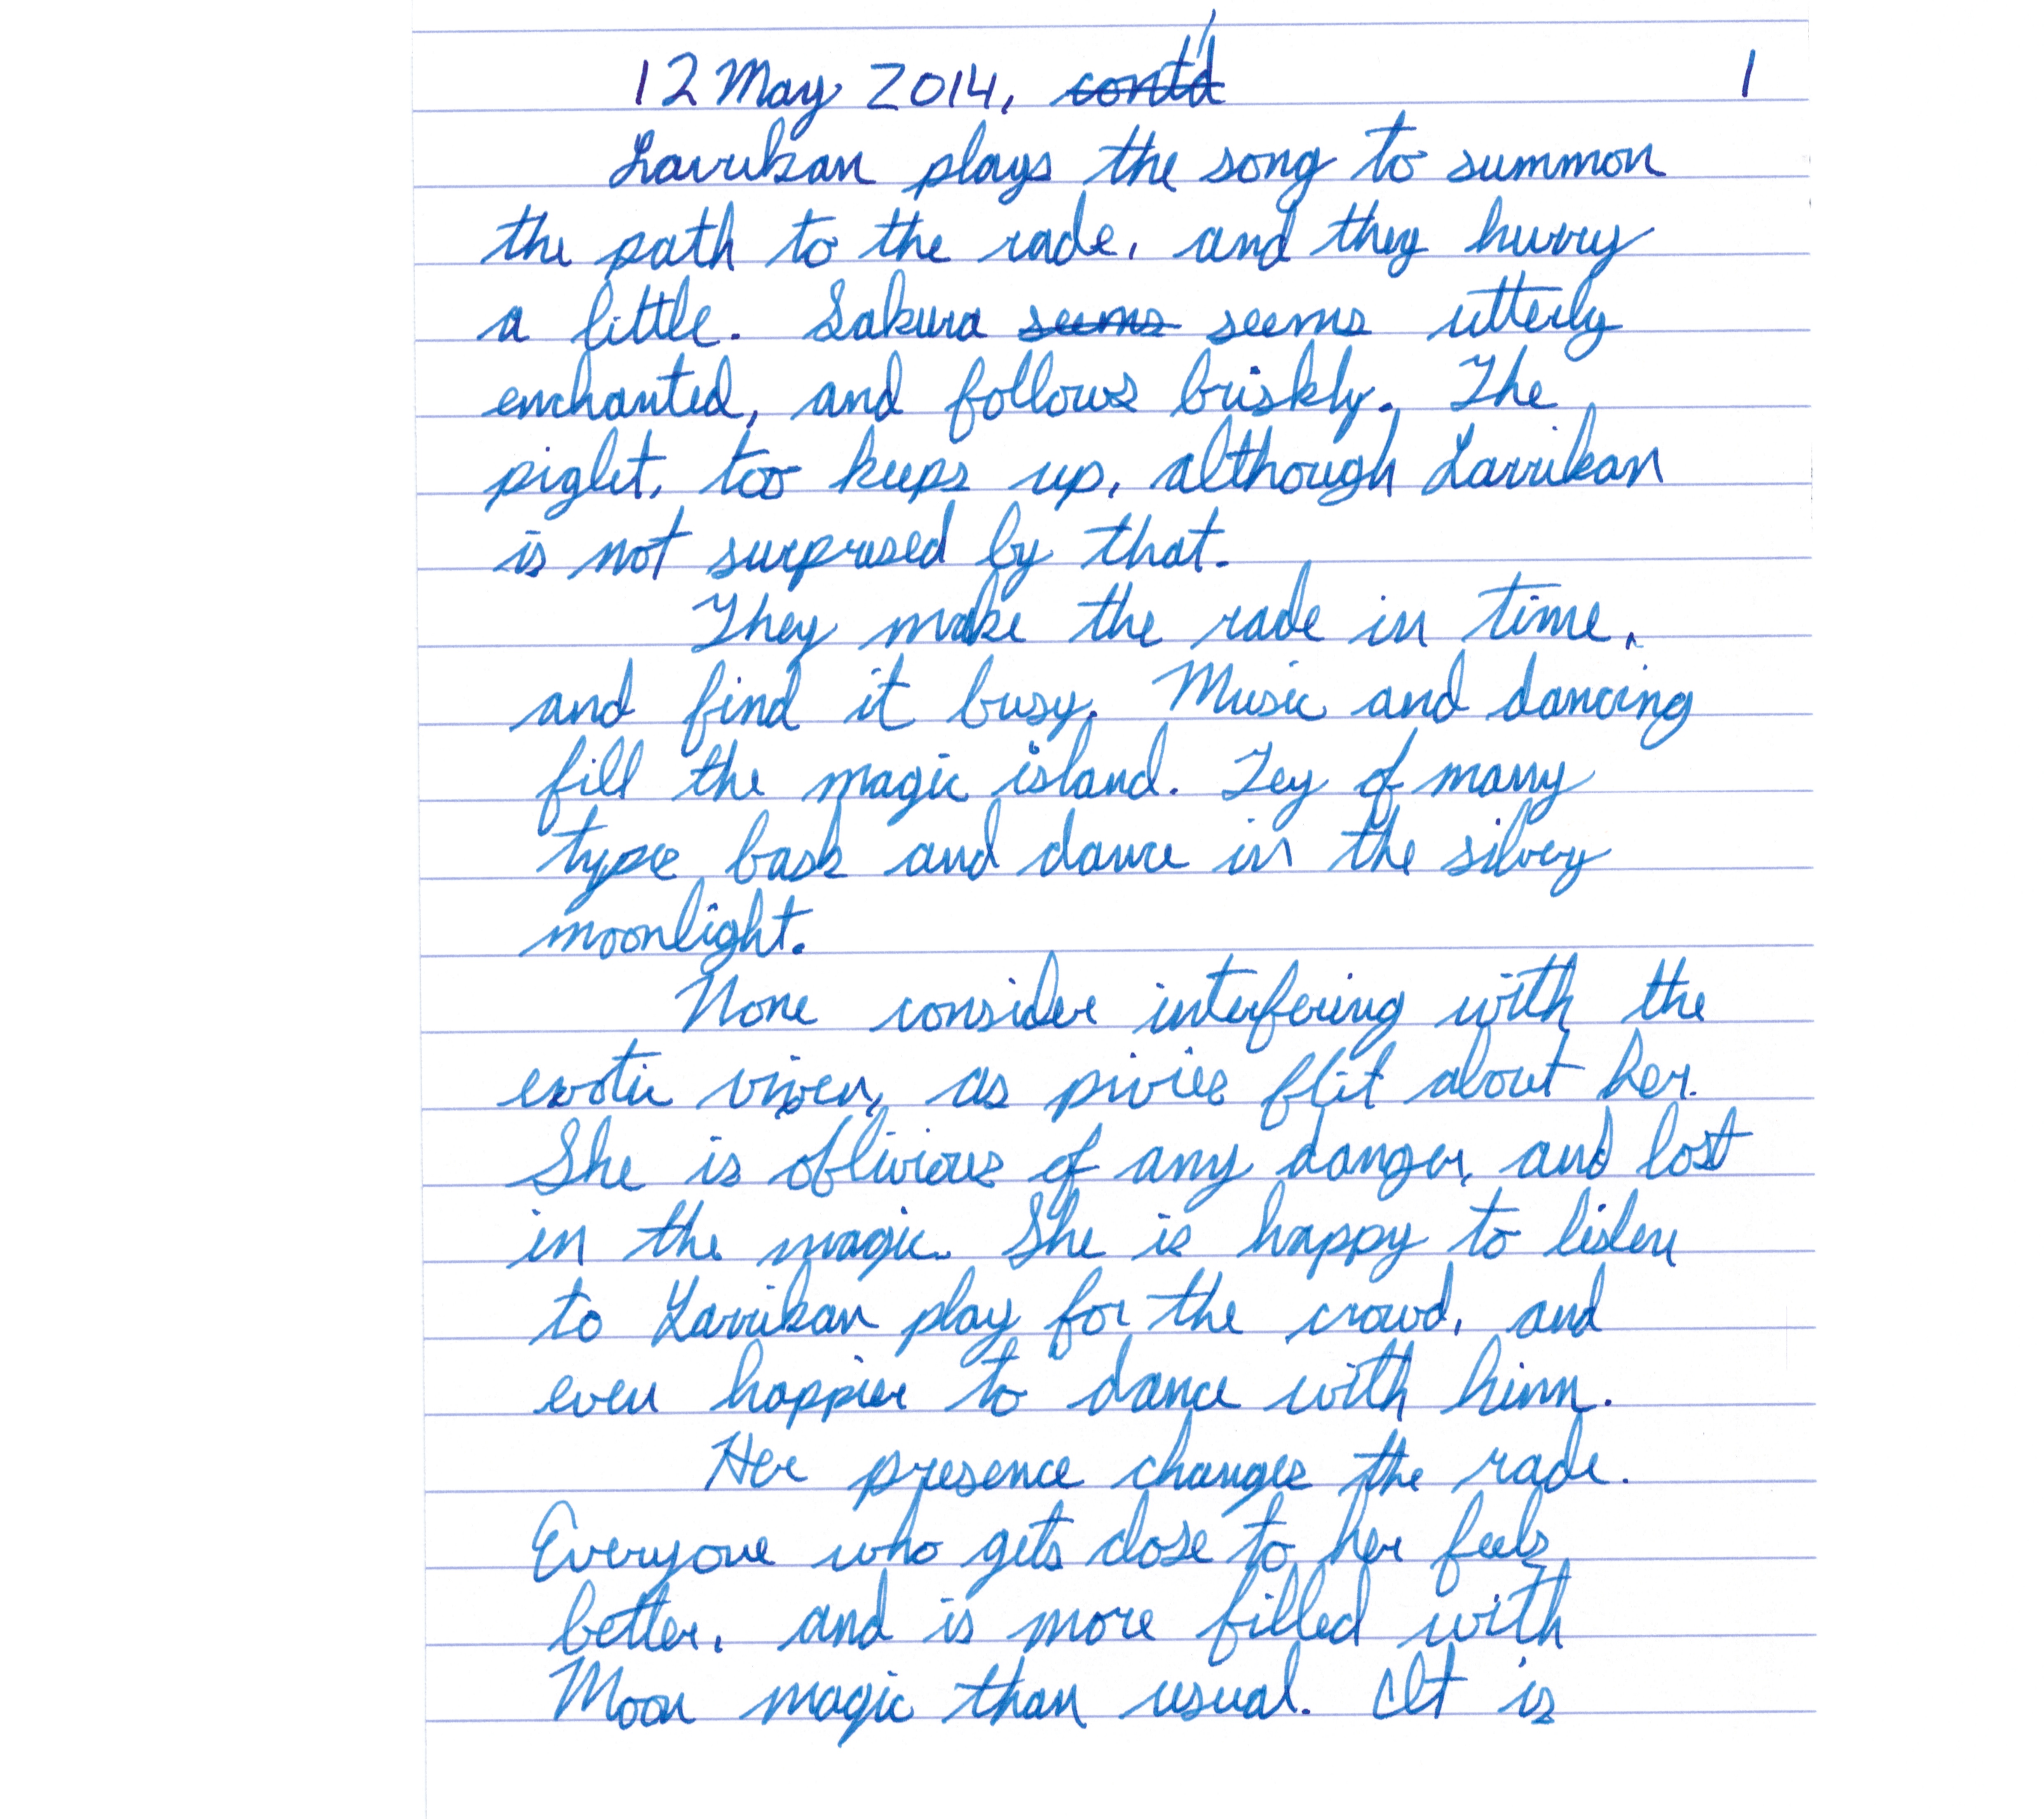 12 May 2014, ~~cont'd~~ 1
Larrikan plays the song to summon
the path to the rade, and they hurry
a little. Sakura ~~seems~~ seems utterly
enchanted, and follows briskly. The
piglet, too keeps up, although Larrikan
is not surprised by that.
They make the rade in time,
and find it busy. Music and dancing
fill the magic island. Fey of many
type bask and dance in the silvery
moonlight.
None consider interfering with the
exotic vixen, as pixies flit about her.
She is oblivious of any danger, and lost
in the magic. She is happy to listen
to Larrikan play for the crowd, and
even happier to dance with him.
Her presence changes the rade.
Everyone who gets close to her feels
better, and is more filled with
Moon magic than usual. It is